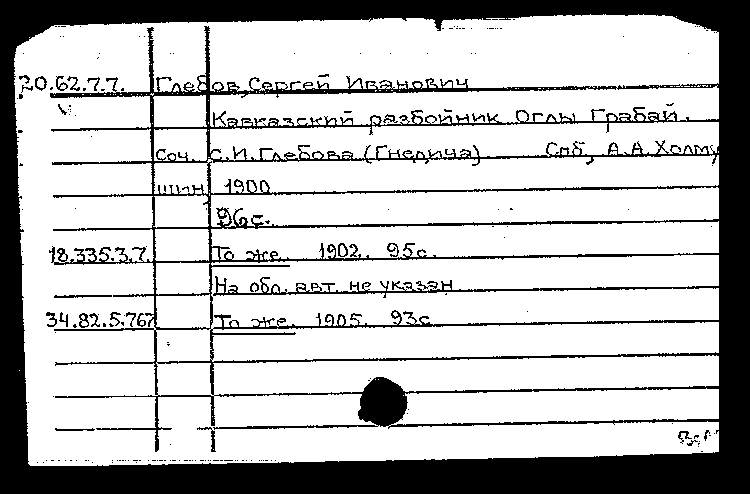 20.62.7.7. Глебов, Сергей Иванович
Кавказский разбойник Оглы Грабай.
Соч. С.И. Глебова (Гнедича) Спб, А.А. Холму
шин, 1900
96с.
18.335.3.7. То же. 1902. 95с.
На обл. авт. не указан
34.82.5.767 То же. 1905. 93с